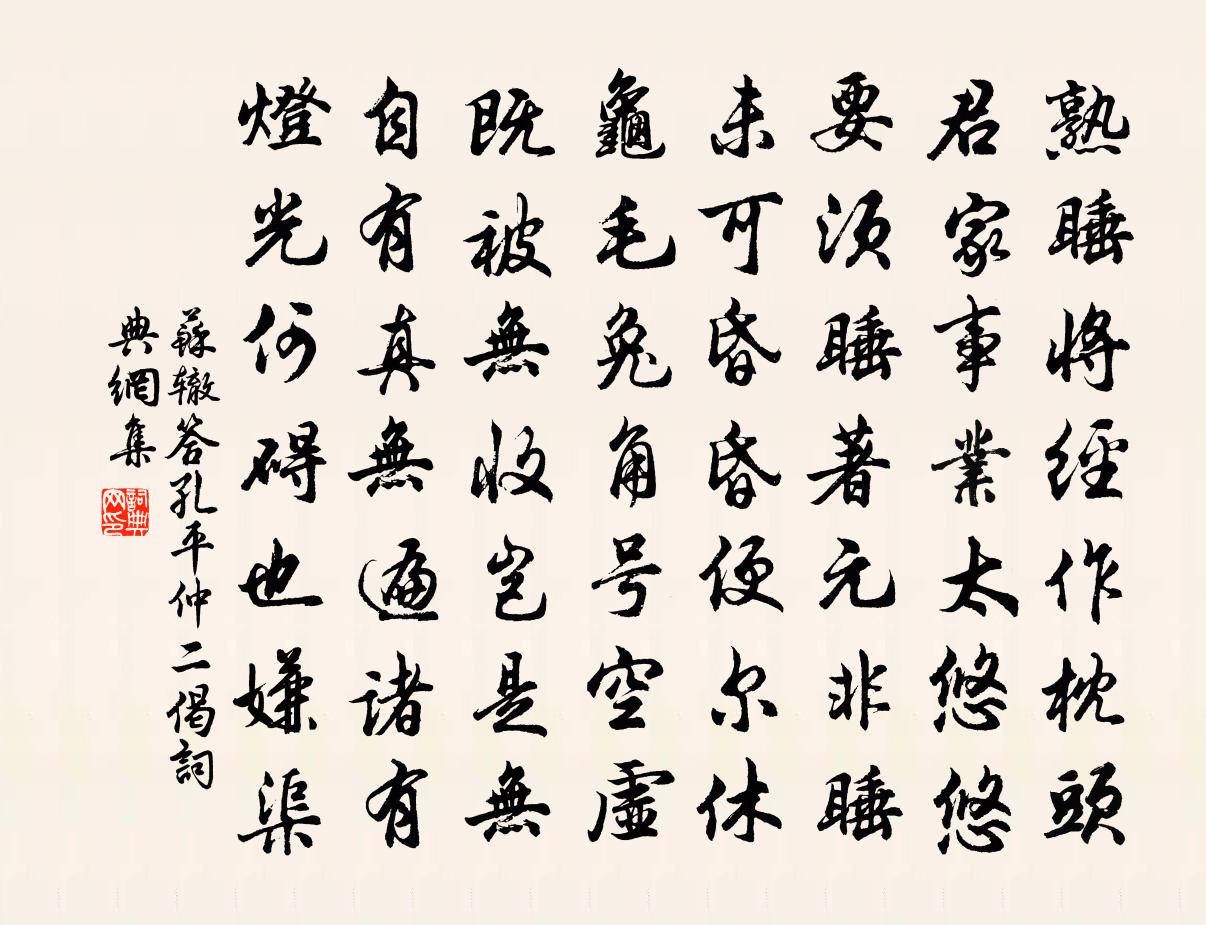 熟睡將經作枕頭
君家事業太悠悠
要須睡著元非睡
未可昏昏便尔休
龜毛兔角号空虛
既被無收豈是無
自有真無遍諸有
燈光何碍也嫌渠
蘇辙答孔平仲二偈詞
典網集
詞典
网印